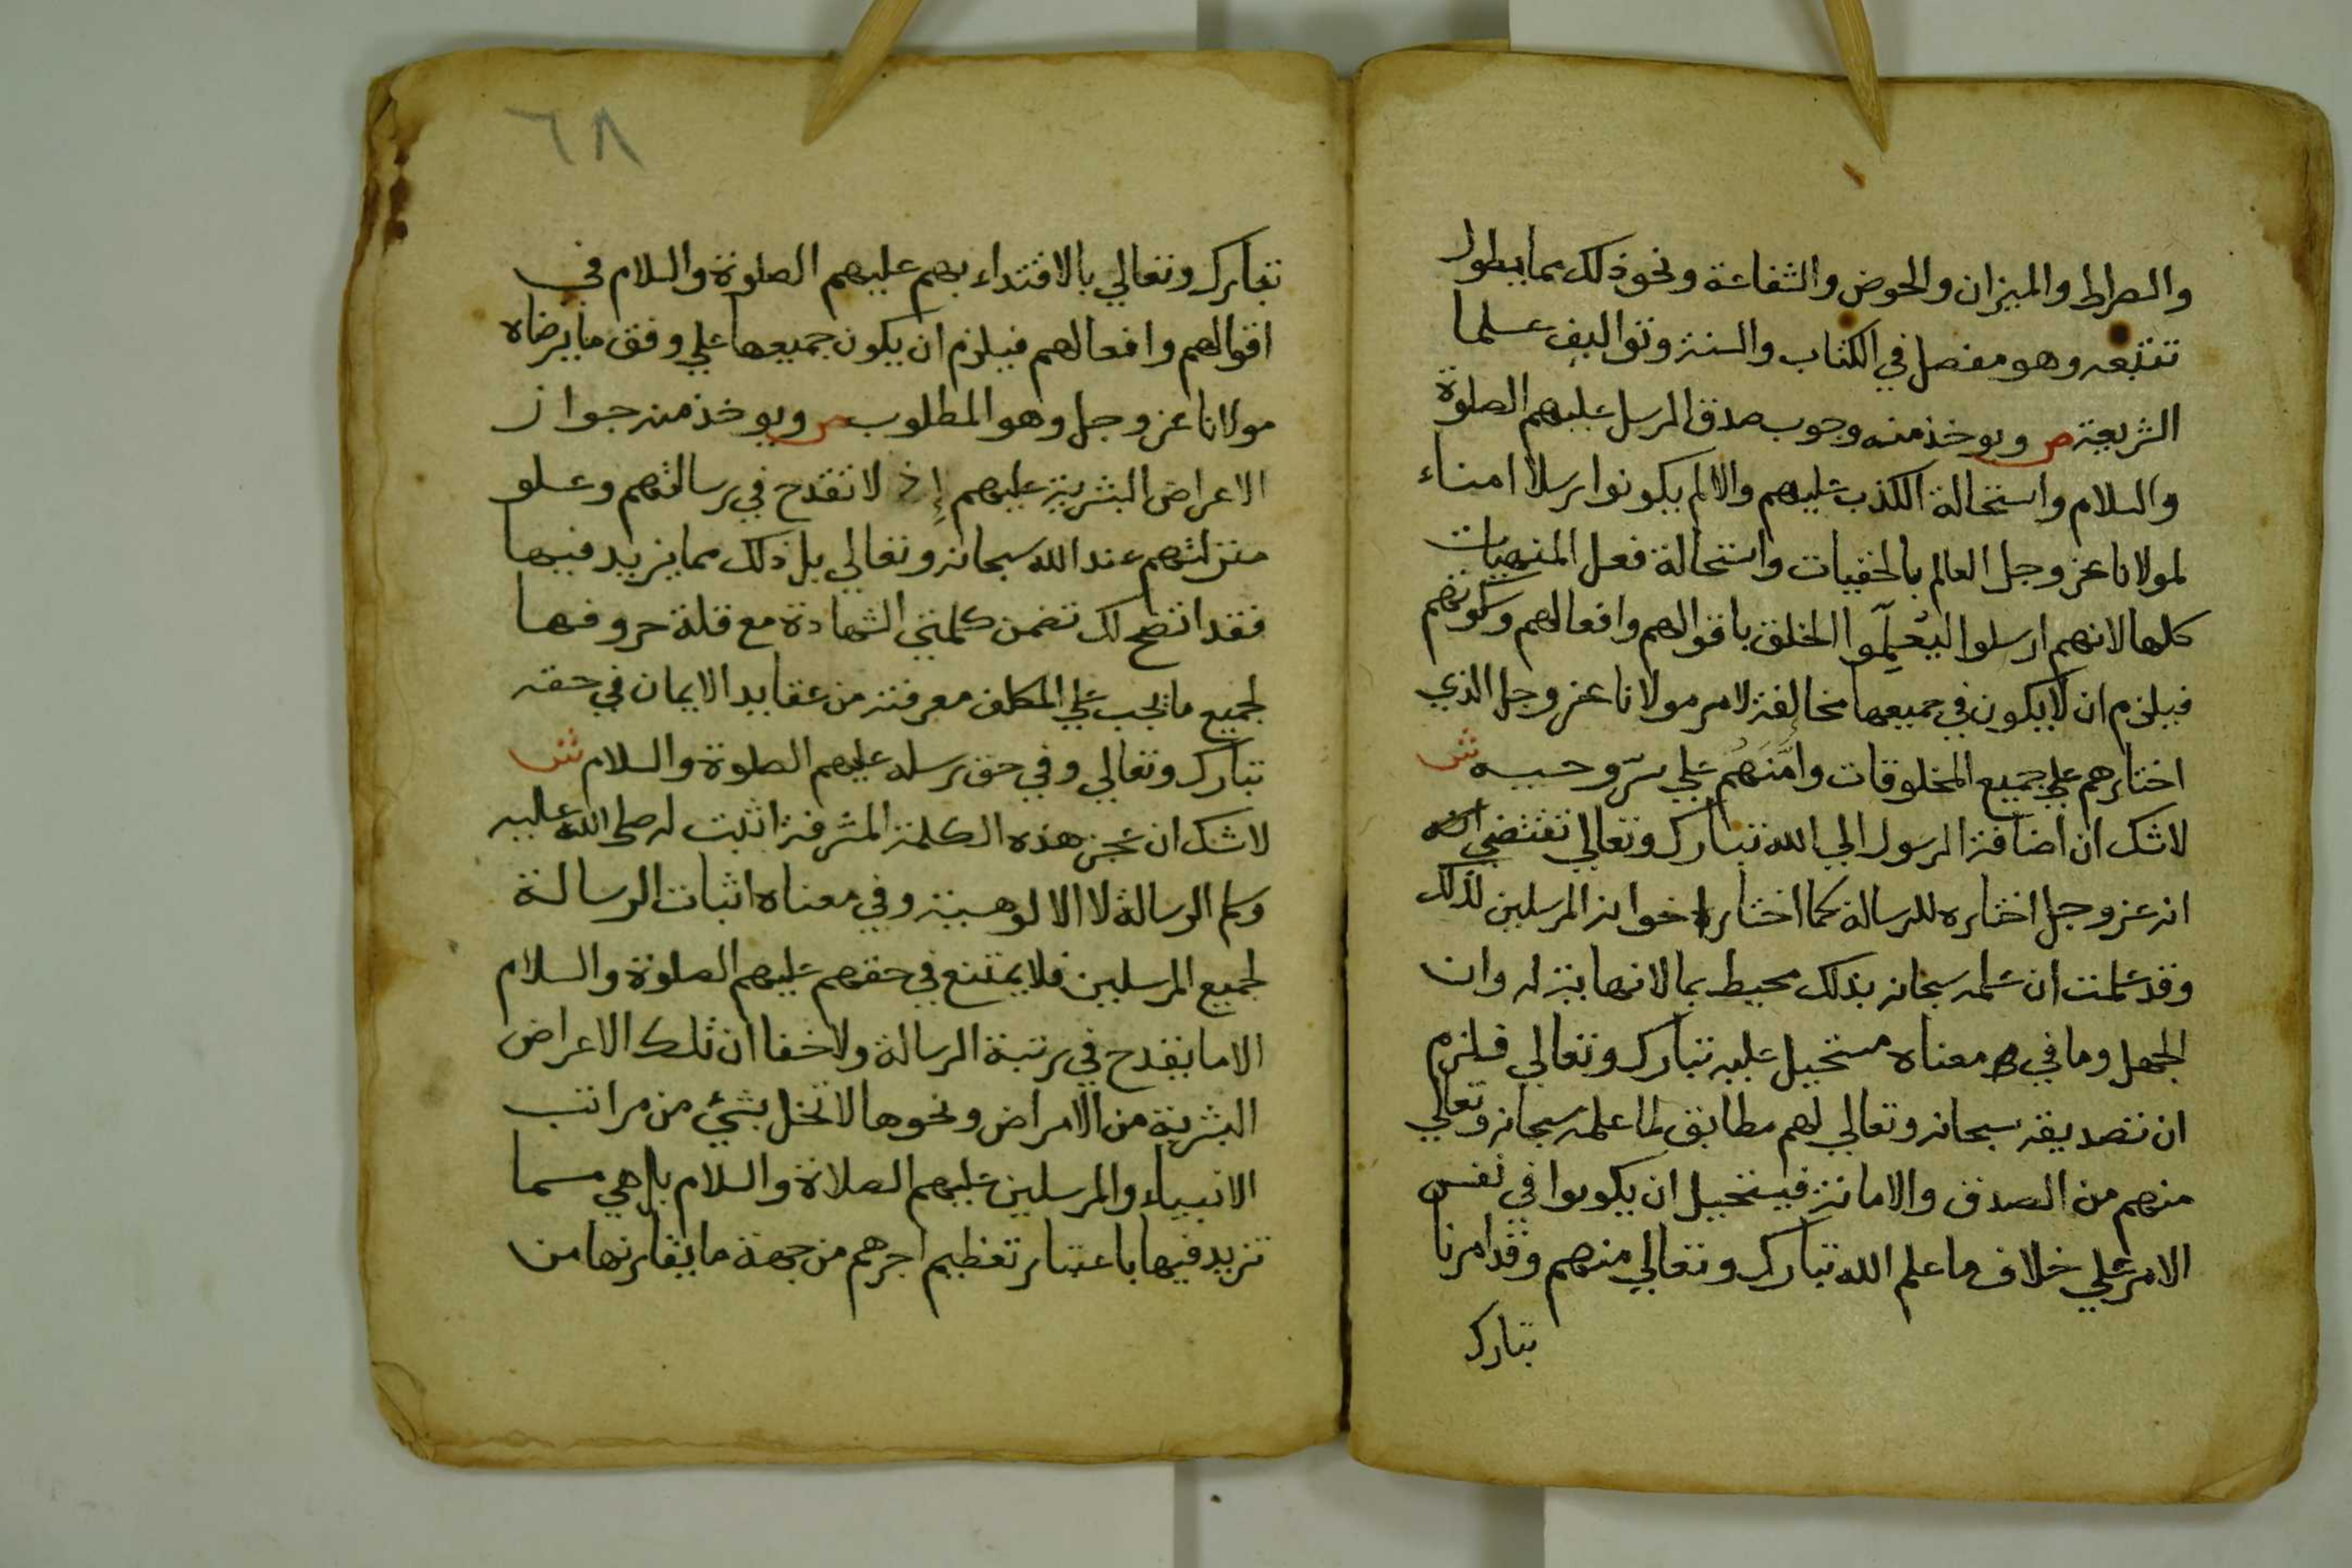 والصراط والميزان والحوض والشفاعة ونحو ذلك مما يطول
تتبعه وهو مفصل في الكتاب والسنة وتواليف علما
الشريعة ص ويوخذ منه وجوب صدق الرسل عليهم الصلوة
والسلام واستحالة الكذب عليهم والا لم يكونوا رسلا امناء
لمولانا عز وجل العالم بالخفيات واستحالة فعل المنهيات
كلها لانهم ارسلوا ليعلموا الخلق باقوالهم وافعالهم وسكوتهم
فيلزم ان لا يكون في جميعها مخالفة لامر مولانا عز وجل الذي
اختارهم علي جميع المخلوقات وامنهم علي سر وحييه ش
لا شك ان اضافة الرسول الي الله تبارك وتعالي تقتضي
انه عز وجل اختاره للرسالة كما اختار اخوانه المرسلين لذلك
وقد علمت ان علمه سبحانه بذلك محيط بما لا نهاية له وان
الجهل وما في معناه مستحيل عليه تبارك وتعالي فلزم
ان تصديقه سبحانه وتعالي لهم مطابق لما علمه سبحانه وتعالي
منهم من الصدق والامانة فيستحيل ان يكونوا في نفس
الامر علي خلاف ما علم الله تبارك وتعالي منهم وقد امرنا
تبارك
٦٨
تبارك وتعالي بالاقتداء بهم عليهم الصلوة والسلام في
اقوالهم وافعالهم فيلزم ان يكون جميعها علي وفق ما يرضاه
مولانا عز وجل وهو المطلوب ص ويوخذ منه جواز
الاعراض البشرية عليهم إذ لا تقدح في رسالتهم وعلو
منزلتهم عند الله سبحانه وتعالي بل ذلك مما يزيد فيها
فقد اتضح لك تضمن كلمتي الشهادة مع قلة حروفها
لجميع ما يجب علي المكلف معرفته من عقايد الايمان في حقه
تبارك وتعالي وفي حق رسله عليهم الصلوة والسلام ش
لا شك ان عجز هذه الكلمة المشرفة اثبت له صلى الله عليه
وسلم الرسالة لا الالوهية وفي معناه اثبات الرسالة
لجميع المرسلين فلا يمتنع في حقهم عليهم الصلوة والسلام
الا ما يقدح في رتبة الرسالة ولا خفا ان تلك الاعراض
البشرية من الامراض ونحوها لا تخل بشئ من مراتب
الانبياء والمرسلين عليهم الصلاة والسلام بل هي مما
تزيد فيها باعتبار تعظيم اجرهم من جهة ما يقارنها من